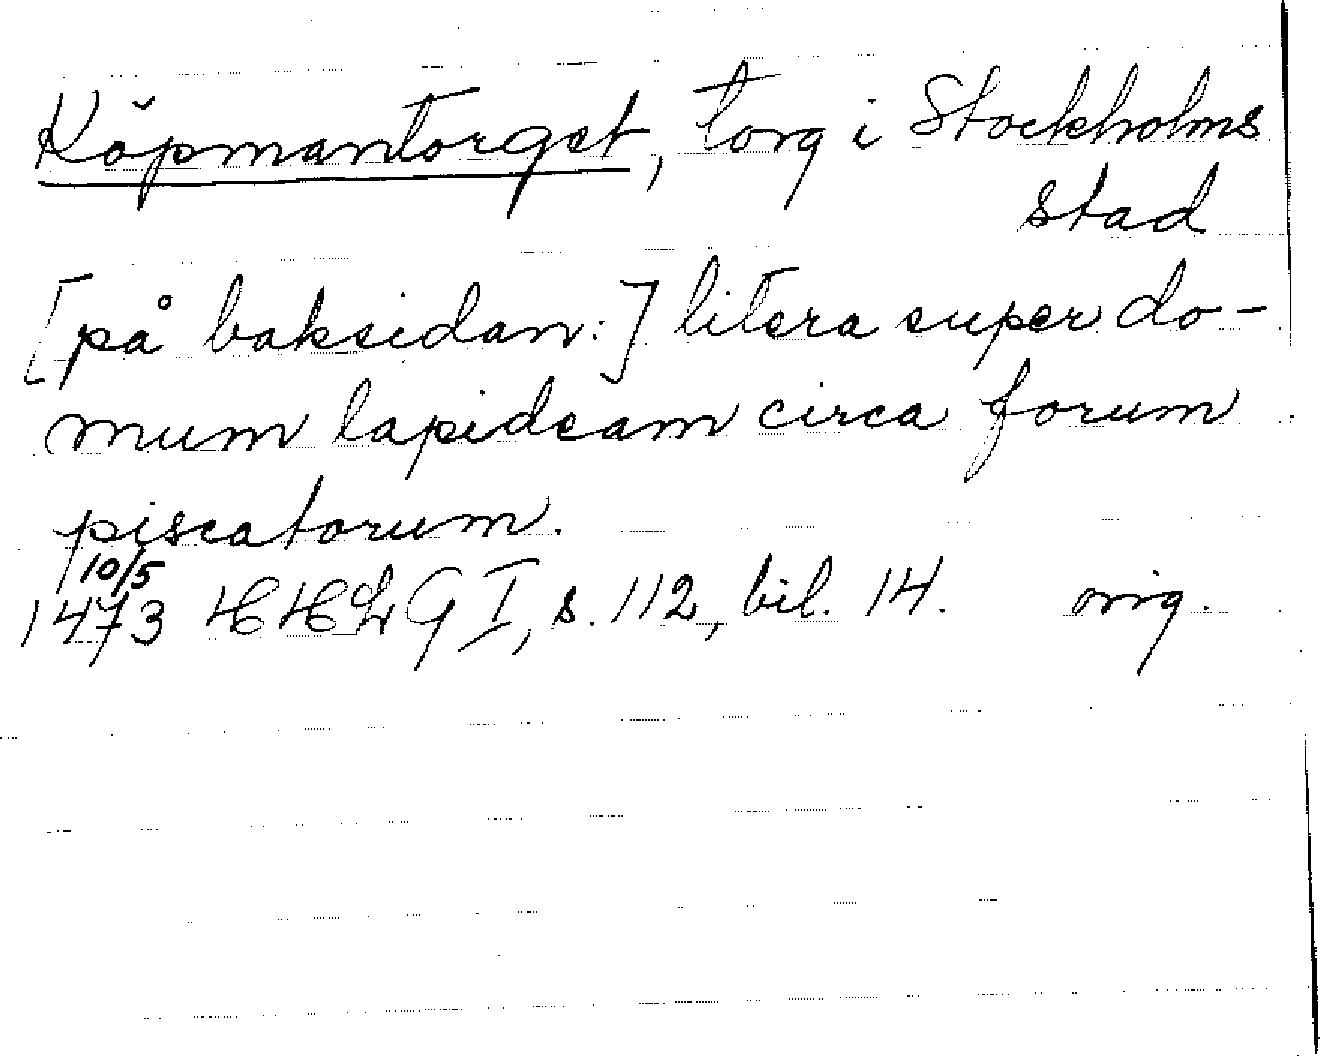 Köpmantorget, torg i Stockholms
stad
[på baksidan:] litera super do-
mum lapideam circa forum
piscatorum.
10/5
1473 HHLG I, s. 112, bil. 14. orig.